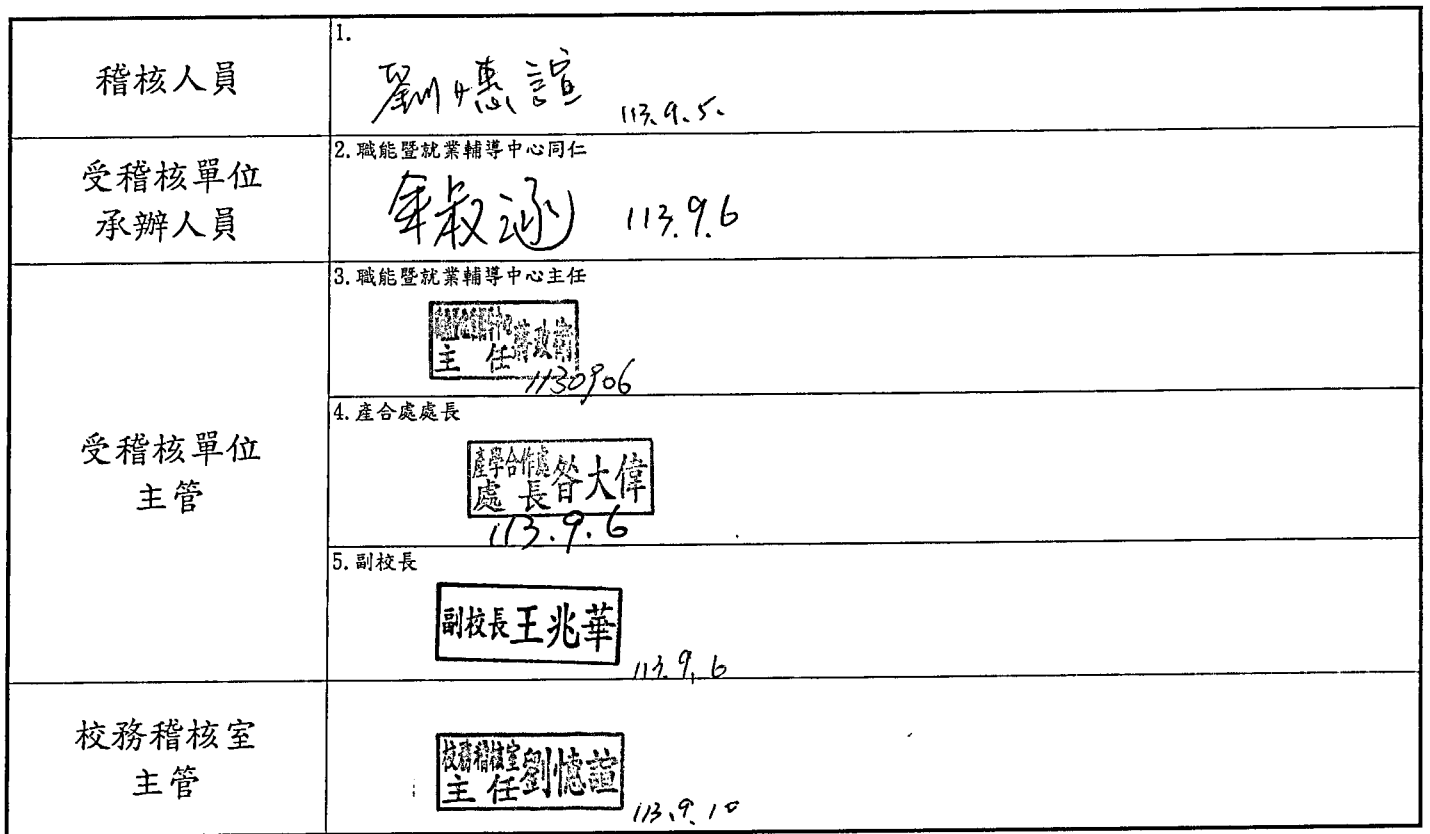 稽核人員
1.
劉憓諠 113.9.5.
受稽核單位
承辦人員
2.職能暨就業輔導中心同仁
淑涵 113.9.6
受稽核單位
主管
3.職能暨就業輔導中心主任
主任
1130906
4.產合處處長
產學合作處
處長昝大偉
113.9.6
5.副校長
副校長王兆華
113.9.6
校務稽核室
主管
校務稽核室
主任劉憓諠
113.9.10